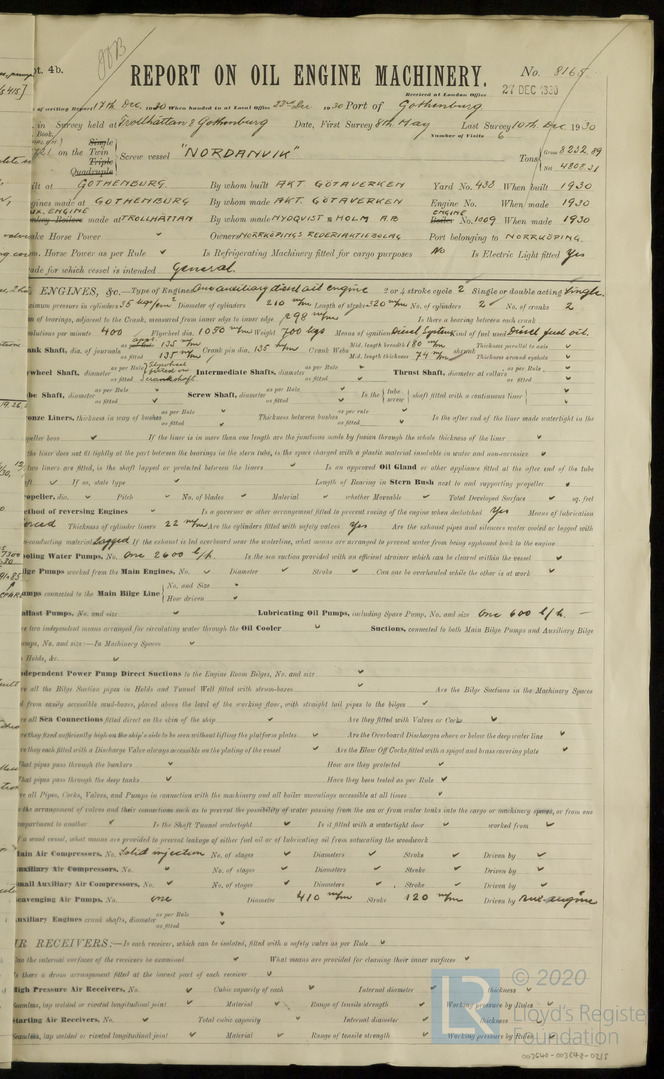 pt. 4b.
REPORT ON OIL ENGINE MACHINERY.
No. 8165
Received at London Office 27 DEC 1930
of writing Report 17th Dec. 1930 When handed in at Local Office 22nd Dec 1930 Port of Gothenburg
in Survey held at Trollhättan & Gothenburg Date, First Survey 8th May Last Survey 10th Dec 1930
Book. Number of Visits 6
on the Single Twin Triple Quadruple Screw vessel "NORDANVIK" Tons Gross 8232.89 Net 4808.31
ilt at GOTHENBURG By whom built AKT. GÖTAVERKEN Yard No. 438 When built 1930
gines made at GOTHENBURG By whom made AKT. GÖTAVERKEN Engine No. When made 1930
made at TROLLHÄTTAN By whom made NYDQVIST & HOLM A.B ENGINE Boiler No. 1009 When made 1930
ake Horse Power Owners NORRKÖPINGS REDERIAKTIEBOLAG Port belonging to NORRKÖPING.
m. Horse Power as per Rule ✓ Is Refrigerating Machinery fitted for cargo purposes No Is Electric Light fitted Yes
ade for which vessel is intended General.
ENGINES, &c.—Type of Engines One auxiliary diesel oil engine 2 or 4 stroke cycle 2 Single or double acting Single.
ximum pressure in cylinders 35 kgs/cm² Diameter of cylinders 210 m/m Length of stroke 320 m/m No. of cylinders 2 No. of cranks 2
of bearings, adjacent to the Crank, measured from inner edge to inner edge 298 m/m Is there a bearing between each crank
volutions per minute 400 Flywheel dia. 1050 m/m Weight 700 kgs Means of ignition Diesel System Kind of fuel used Diesel fuel oil.
ank Shaft, dia. of journals as per Rule appd 135 m/m as fitted 135 m/m Crank pin dia. 135 m/m Crank Webs Mid. length breadth 180 m/m Mid. length thickness 74 m/m shrunk Thickness parallel to axis ✓ Thickness around eyehole ✓
ywheel Shaft, diameter as per Rule Flywheel fitted on as fitted crankshaft. Intermediate Shafts, diameter as per Rule as fitted Thrust Shaft, diameter at collars as per Rule as fitted
be Shaft, diameter as per Rule as fitted Screw Shaft, diameter as per Rule as fitted Is the tube screw shaft fitted with a continuous liner
onze Liners, thickness in way of bushes as per Rule as fitted Thickness between bushes as per rule as fitted Is the after end of the liner made watertight in the
peller boss ✓ If the liner is in more than one length are the junctions made by fusion through the whole thickness of the liner ✓
the liner does not fit tightly at the part between the bearings in the stern tube, is the space charged with a plastic material insoluble in water and non-corrosive ✓
two liners are fitted, is the shaft lapped or protected between the liners ✓ Is an approved Oil Gland or other appliance fitted at the after end of the tube
ft ✓ If so, state type ✓ Length of Bearing in Stern Bush next to and supporting propeller ✓
opeller, dia. ✓ Pitch ✓ No. of blades ✓ Material ✓ whether Moveable ✓ Total Developed Surface ✓ sq. feet
ethod of reversing Engines ✓ Is a governor or other arrangement fitted to prevent racing of the engine when declutched Yes Means of lubrication
orced Thickness of cylinder liners 22 m/m Are the cylinders fitted with safety valves Yes Are the exhaust pipes and silencers water cooled or lagged with
n-conducting material Lagged If the exhaust is led overboard near the waterline, what means are arranged to prevent water from being syphoned back to the engine
ooling Water Pumps, No. One 2600 l/h. Is the sea suction provided with an efficient strainer which can be cleared within the vessel ✓
lge Pumps worked from the Main Engines, No. ✓ Diameter ✓ Stroke ✓ Can one be overhauled while the other is at work ✓
umps connected to the Main Bilge Line No. and Size How driven ✓
allast Pumps, No. and size ✓ Lubricating Oil Pumps, including Spare Pump, No. and size One 600 l/h. —
re two independent means arranged for circulating water through the Oil Cooler ✓ Suctions, connected to both Main Bilge Pumps and Auxiliary Bilge
umps, No. and size:—In Machinery Spaces ✓
Holds, &c. ✓
dependent Power Pump Direct Suctions to the Engine Room Bilges, No. and size ✓
re all the Bilge Suction pipes in Holds and Tunnel Well fitted with strum-boxes ✓ Are the Bilge Suctions in the Machinery Spaces
d from easily accessible mud-boxes, placed above the level of the working floor, with straight tail pipes to the bilges ✓
re all Sea Connections fitted direct on the skin of the ship ✓ Are they fitted with Valves or Cocks ✓
re they fixed sufficiently high on the ship's side to be seen without lifting the platform plates ✓ Are the Overboard Discharges above or below the deep water line ✓
re they each fitted with a Discharge Valve always accessible on the plating of the vessel ✓ Are the Blow Off Cocks fitted with a spigot and brass covering plate ✓
hat pipes pass through the bunkers ✓ How are they protected ✓
hat pipes pass through the deep tanks ✓ Have they been tested as per Rule ✓
re all Pipes, Cocks, Valves, and Pumps in connection with the machinery and all boiler mountings accessible at all times ✓
the arrangement of valves and their connections such as to prevent the possibility of water passing from the sea or from water tanks into the cargo or machinery spaces, or from one
mpartment to another ✓ Is the Shaft Tunnel watertight ✓ Is it fitted with a watertight door ✓ worked from ✓
f a wood vessel, what means are provided to prevent leakage of either fuel oil or of lubricating oil from saturating the woodwork
ain Air Compressors, No. Solid injection No. of stages ✓ Diameters ✓ Stroke ✓ Driven by ✓
uxiliary Air Compressors, No. ✓ No. of stages ✓ Diameters ✓ Stroke ✓ Driven by ✓
mall Auxiliary Air Compressors, No. ✓ No. of stages ✓ Diameters ✓ Stroke ✓ Driven by ✓
cavenging Air Pumps, No. one Diameter 410 m/m Stroke 120 m/m Driven by aux. engine
uxiliary Engines crank shafts, diameter as per Rule as fitted ✓
IR RECEIVERS:—Is each receiver, which can be isolated, fitted with a safety valve as per Rule ✓
an the internal surfaces of the receivers be examined ✓ What means are provided for cleaning their inner surfaces ✓
s there a drain arrangement fitted at the lowest part of each receiver ✓
igh Pressure Air Receivers, No. ✓ Cubic capacity of each ✓ Internal diameter ✓ thickness ✓
eamless, lap welded or riveted longitudinal joint ✓ Material ✓ Range of tensile strength ✓ Working pressure by Rules ✓
tarting Air Receivers, No. ✓ Total cubic capacity ✓ Internal diameter ✓ thickness ✓
eamless, lap welded or riveted longitudinal joint ✓ Material ✓ Range of tensile strength ✓ Working pressure by Rules ✓
LR © 2020
Lloyd's Register
Foundation
003640-003648-0215